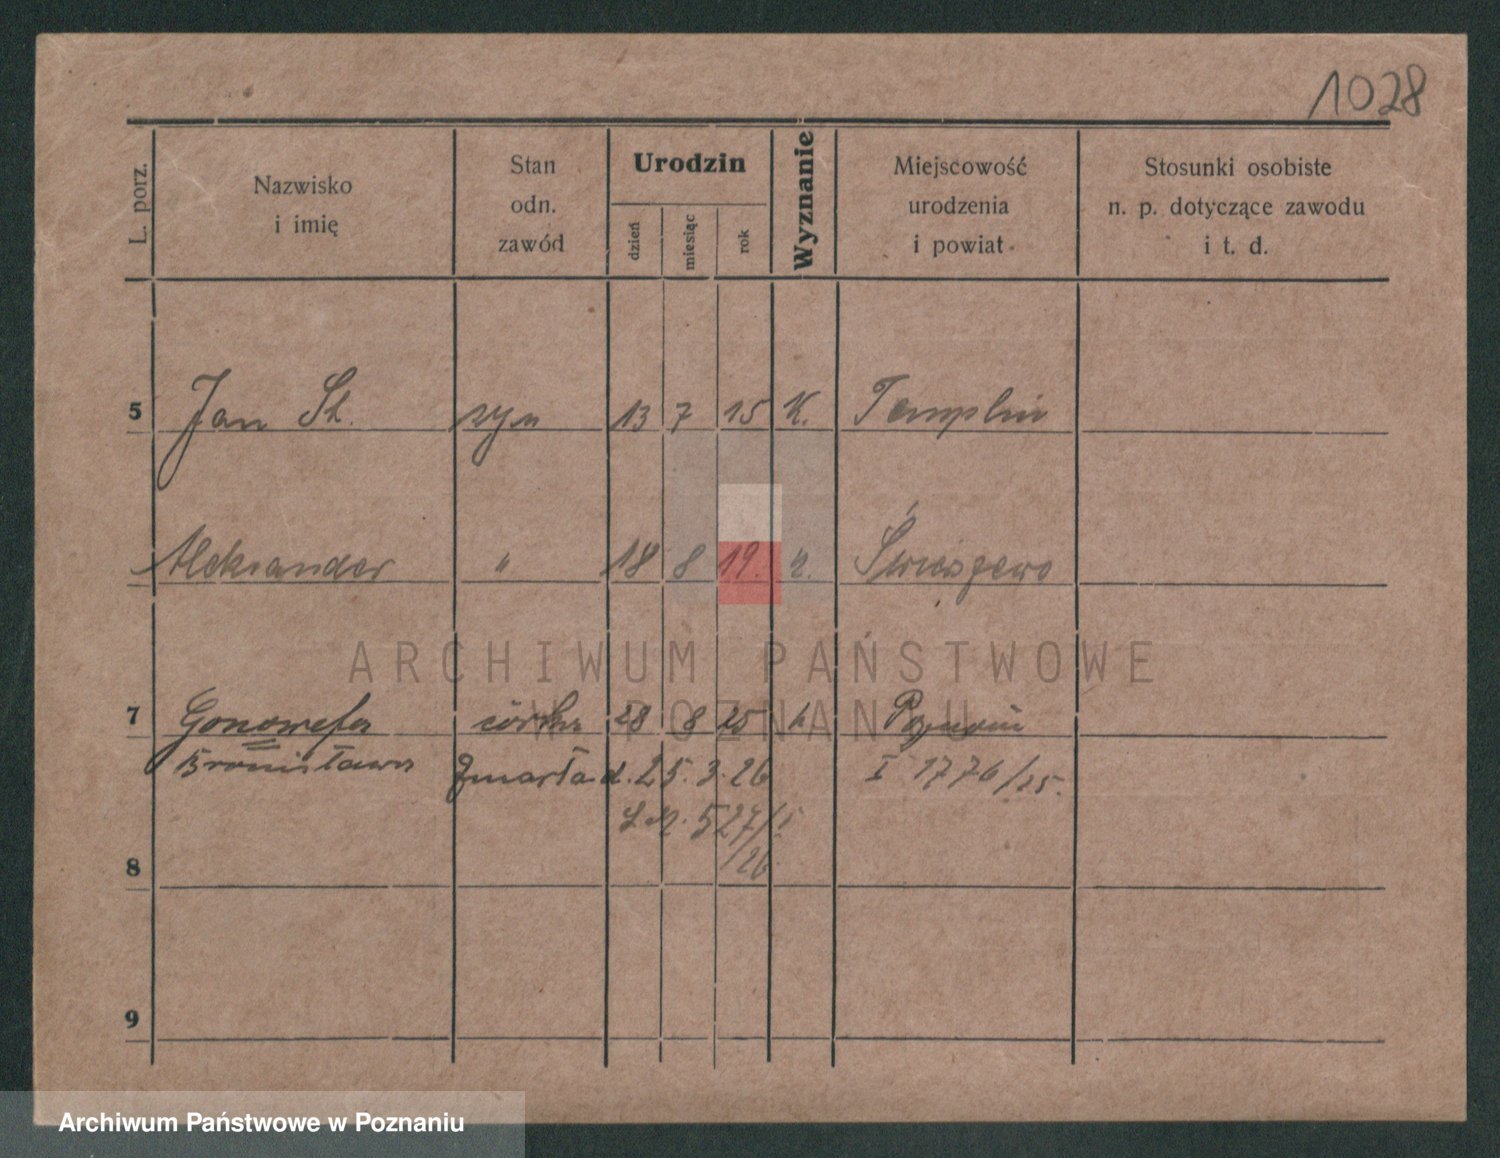 1028
L. porz.
Nazwisko
i imię
Stan
odn.
zawód
Urodzin
dzień
miesiąc
rok
Wyznanie
Miejscowość
urodzenia
i powiat
Stosunki osobiste
n. p. dotyczące zawodu
i t. d.
5 Jan St. syn 13 7 15 K. Templin
Aleksander " 18 8 19.
7 Genowefa córka 28 8 25 k Poznań
Bronisława zmarła d. 25. 3. 26 I 1776/25.
527/I
/26
8
9
ARCHIWUM PAŃSTWOWE
W POZNANIU
Archiwum Państwowe w Poznaniu